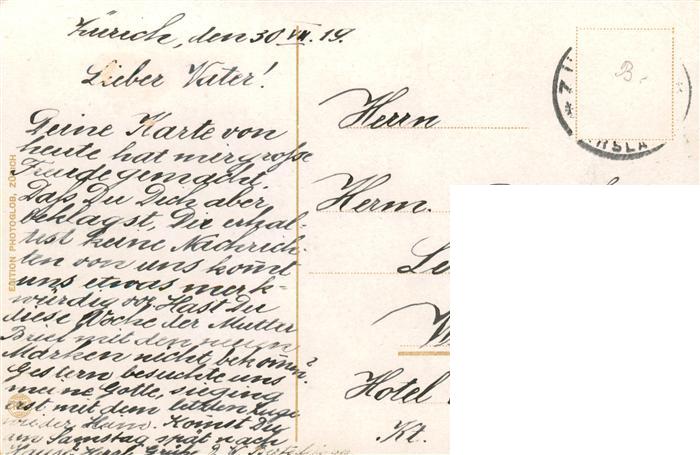 Zürich, den 30 VII. 19.
Lieber Vater!
Deine Karte von
heute hat mir große
Freude gemacht.
Daß Du Dich aber
beklagst, Du erhal-
test keine Nachrich-
ten von uns kom̄t
uns etwas merk-
würdig vor. Hast Du
diese Woche der Mutter
Brief mit den neuen
Marken nicht bekom̄en?
Gestern besuchte uns
meine Gotte, sie ging
erst mit dem letzten Zuge
wieder Heim. Komst Du
am Samstag spät nach
Herrn
Herm.
Hotel
Kt.
B.-
EDITION PHOTOGLOB, ZÜRICH